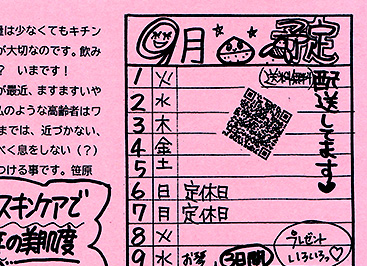 量は少なくてもキチン
が大切なのです。飲み
？ いまです！
が最近、ますますいや
私のような高齢者はワ
までは、近づかない、
べく息をしない（？）
つける事です。笹原
スキンケアで
の美肌度
9月 予定
送料無料
配送してます
1 火
2 水
3 木
4 金
5 土
6 日 定休日
7 月 定休日
8 火
9 水
3日間
プレゼント
いろいろ